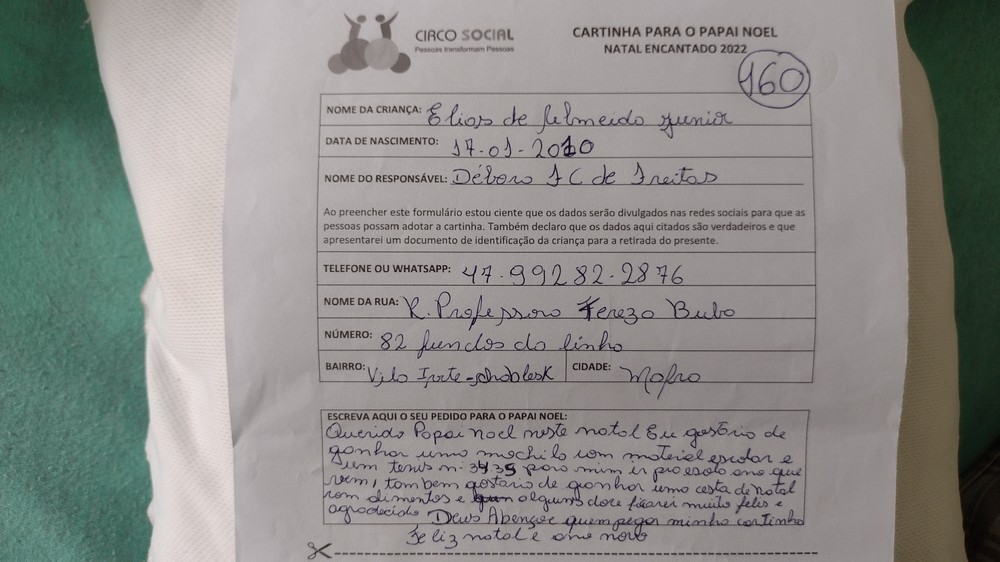 CIRCO SOCIAL
Pessoas transformam Pessoas
CARTINHA PARA O PAPAI NOEL
NATAL ENCANTADO 2022
160
NOME DA CRIANÇA: Elias de Almeida Junior
DATA DE NASCIMENTO: 17-01-2010
NOME DO RESPONSÁVEL: Débora F C de Freitas
Ao preencher este formulário estou ciente que os dados serão divulgados nas redes sociais para que as
pessoas possam adotar a cartinha. Também declaro que os dados aqui citados são verdadeiros e que
apresentarei um documento de identificação da criança para a retirada do presente.
TELEFONE OU WHATSAPP: 47-99282-2876
NOME DA RUA: R. Professora Tereza Buba
NÚMERO: 82 fundos da linha
BAIRRO: Vila CIDADE: Mafra
ESCREVA AQUI O SEU PEDIDO PARA O PAPAI NOEL:
Querido Papai noel neste natal Eu gostaria de
ganhar uma mochila com material escolar e
um tenis n. 34 35 para mim ir pra escola ano que
vem, tambem gostaria de ganhar uma cesta de natal
com alimentos e alguns doce ficarei muito felis e
agradecido Deus Abençoe quem pegar minha cartinha
Feliz natal e ano novo